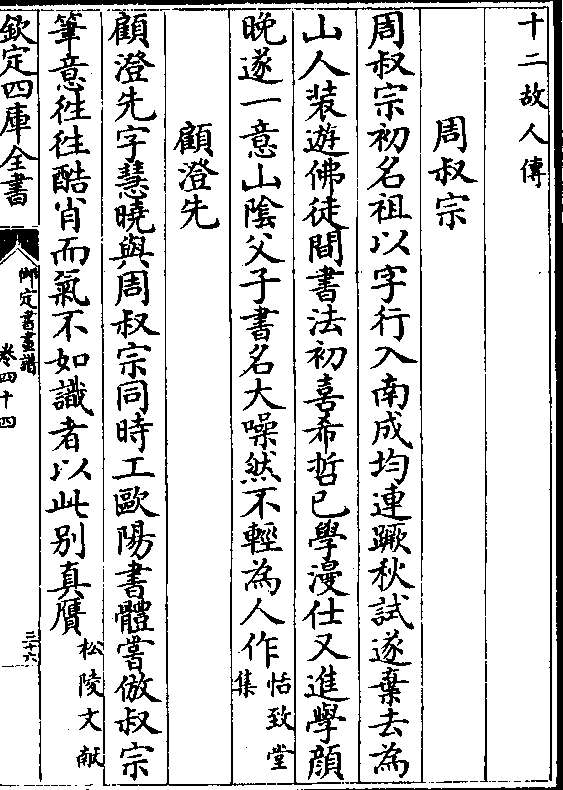 十二故人傳
周叔宗
周叔宗初名祖以字行入南成均連蹶秋試遂棄去為
山人裝遊佛徒間書法初喜希哲已學漫仕又進學顔
晚遂一意山陰父子書名大噪然不輕為人作恬致堂
集
顧澄先
顧澄先字慧曉與周叔宗同時工歐陽書體嘗倣叔宗
筆意徃徃酷肖而氣不如識者以此别真贋松陵文献
欽定四庫全書
御定書畫譜
卷四十四
三十六